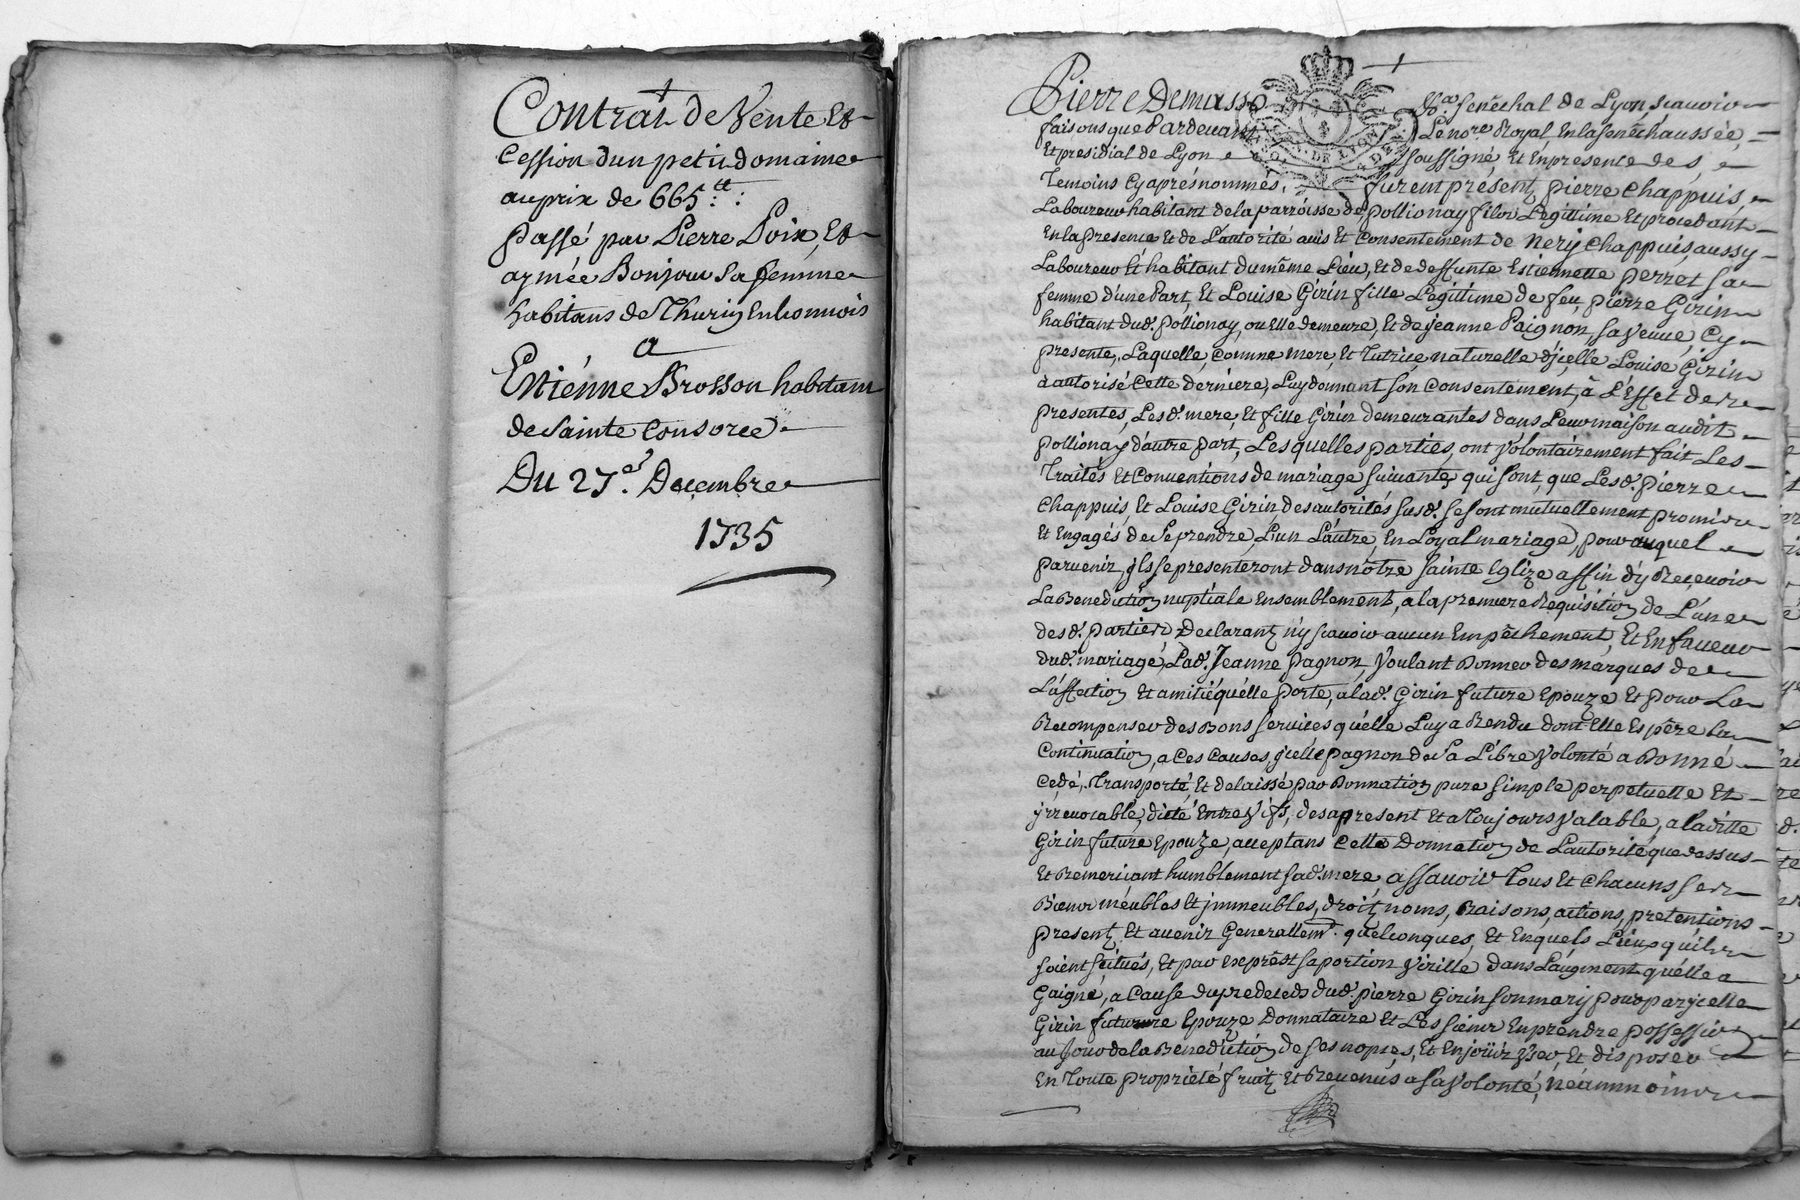 Contrat de Vente Et
Cession dun petit domaine
au prix de 665 ₶ :
passé par Pierre Poix, Et
aymée Bonjour sa femme
habitans de Thurin En Lionnois
a
Estiénne Brosson habitant
de Sainte Consorce
Du 27e. Decembre
1735
Pierre Demasso Senêchal de Lyon scauoir
faisons que Pardeuant Le nore. Royal En la Senêchaussée,
Et presidial de Lyon soussigné Et En presence des
Temoins Cy aprés nommés, furent présentz pierre Chappuis,
Laboureur habitant de la parroisse de pollionay fils Legitime Et procedant
En la presence Et de L'autorité auis Et Consentement de Nery Chappuis, aussy
Laboureur Et habitant du même Lieu, Et de deffunte Estiennette perret sa
femme d'une Part, Et Louise Girin fille Legitime de feu pierre Girin
habitant dud. pollionay, ou Elle demeure, Et de jeanne Paignon, sa veuue, Cy
presente, Laquelle, Comme mere, Et Tutrice naturelle d'jcelle Louise Girin
à autorisé Cette derniere, Luy donnant son Consentement, à L'Effet des
presentes, Lesd. mere, Et fille Girin demeurantes dans Leur maison audit
pollionay d'autre part, Lesquelles parties, ont Volontairement fait Les
Traités Et Conuentions de mariage suiuantes, qui sont, que Lesd. pierre
Chappuis Et Louise Girin, des autorités susd. se sont mutuellement promis
Et Engagés de se prendre, L'un L'autre, En Loyal mariage, pour auquel
paruenir, jls se presenteront dans nôtre Sainte Eglize affin d'y Receuoir
La Benediction nuptiale Ensemblement, a la premiere Requisition de L'une
desd. parties Declarantz n'y scauoir aucun Empêchement, Et En faueur
dud. mariage, Lad. Jeanne pagnon Voulant Donner des marques de
L'affection Et amitié qu'elle porte, a lad. Girin future Epouze Et pour La
Recompenser des Bons seruices qu'elle Luy a Rendu dont Elle Espêre la
Continuation, a Ces Causes, jcelle pagnon de Sa Libre Volonté a Donné
Cedé, Transporté, Et delaissé par Donnation pure simple perpetuelle Et
jrreuocable, ditte Entre Vifs, des a present Et a Toujours Valable, a laditte
Girin future Epouze, acceptans Cette Donnation de L'autorité que dessus
Et Remerciant humblement sad. mere assauoir Tous Et Chacuns ses
Biens méubles Et jmmeubles, droitz, noms, Raisons, actions, pretentions
presentz Et auenir Generallemt. quelconques, Et En quels Lieux qu'ils
soient scitués, Et par Exprêst sa portion Virille dans L'augment qu'elle a
Gaigné, a Cause du predeceds dud. pierre Girin son mary pour par jcelle
Girin future Epouze Donnataire Et Les siens En prendre possession
au Jour de la Benediction de ses nopces, Et En joüir Vser, Et disposer
En Toute propriété fruitz Et Reuenus a sa Volonté, néammoins